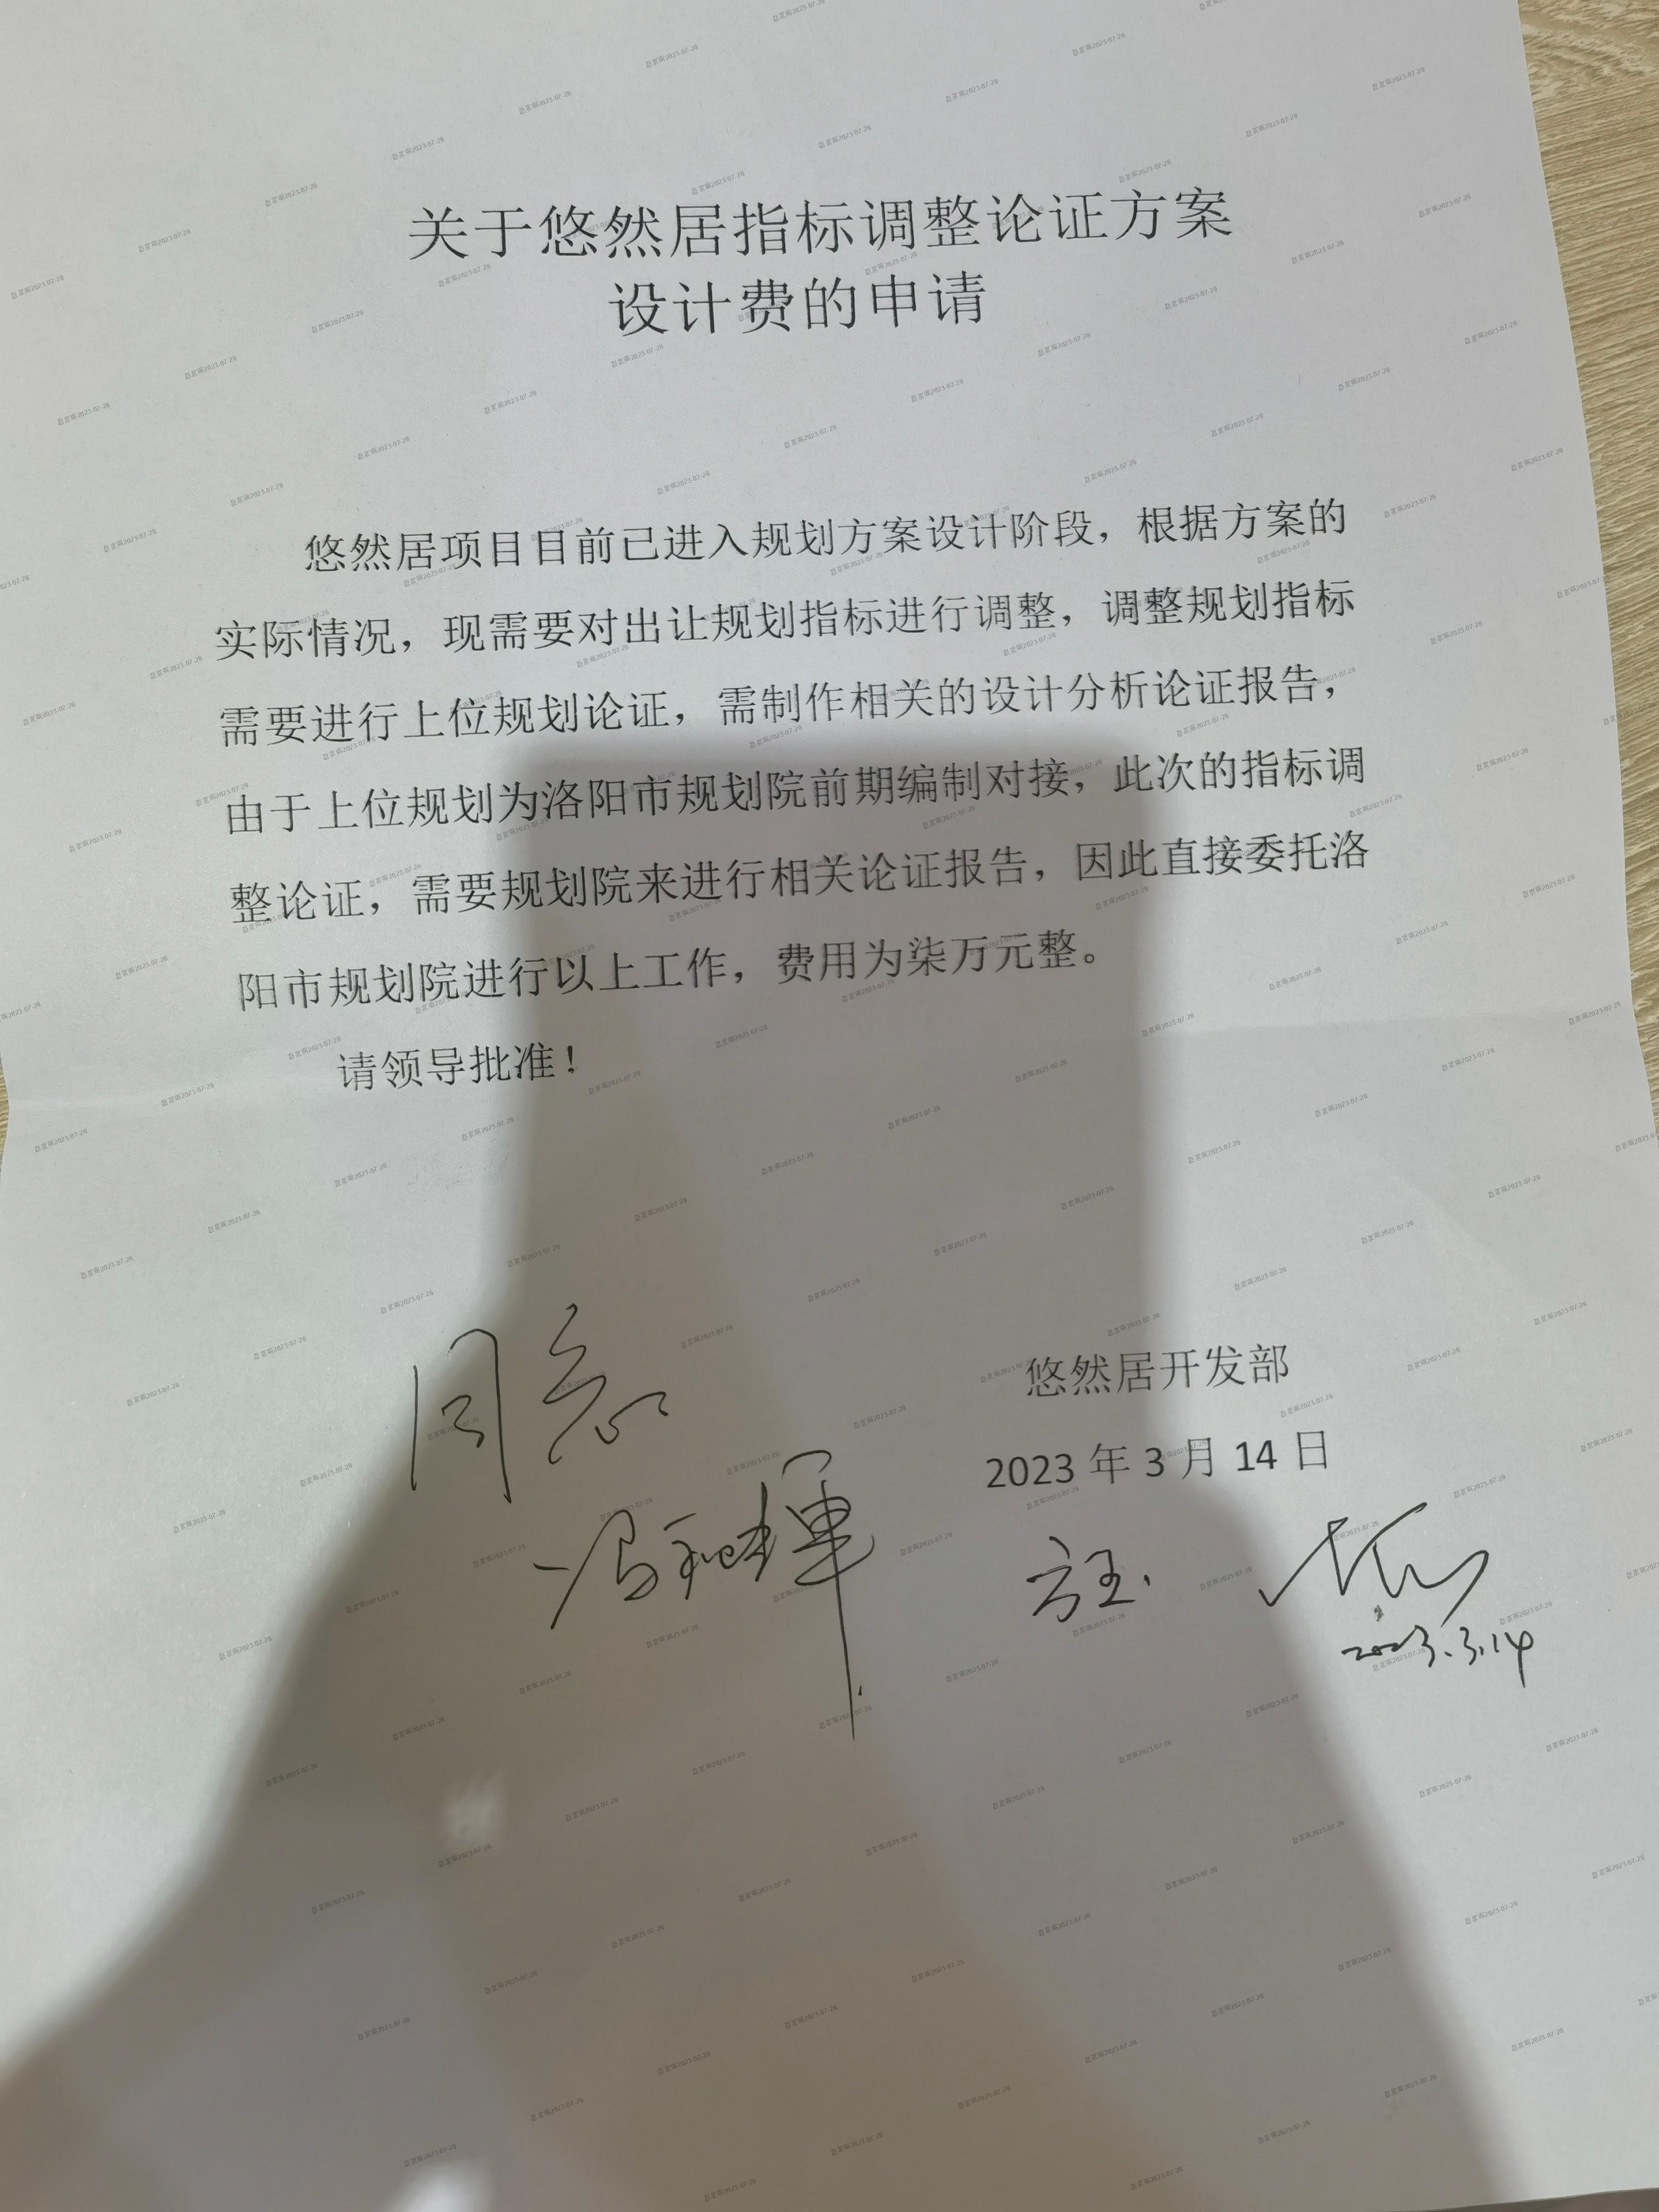 关于悠然居指标调整论证方案
设计费的申请
悠然居项目目前已进入规划方案设计阶段，根据方案的
实际情况，现需要对出让规划指标进行调整，调整规划指标
需要进行上位规划论证，需制作相关的设计分析论证报告，
由于上位规划为洛阳市规划院前期编制对接，此次的指标调
整论证，需要规划院来进行相关论证报告，因此直接委托洛
阳市规划院进行以上工作，费用为柒万元整。
请领导批准！
悠然居开发部
2023 年 3 月 14 日
同意
2023.3.14